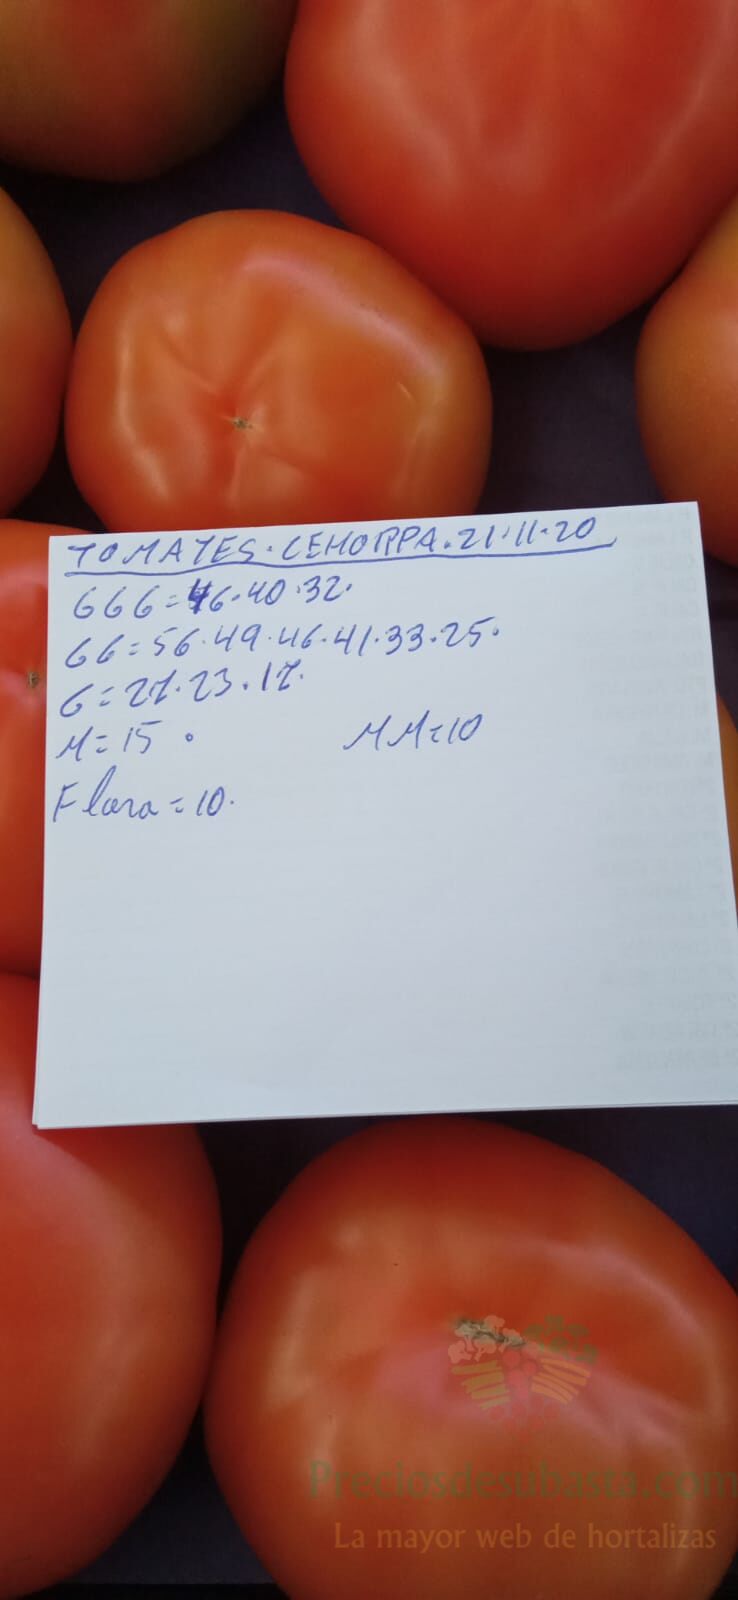 TOMATES.CEHORPA.21.11.20
GGG=46.40.32.
GG=56.49.46.41.33.25.
G=27.23.17.
M=15 .
MM=10
Flora=10.
Preciosdesubasta.com
La mayor web de hortalizas